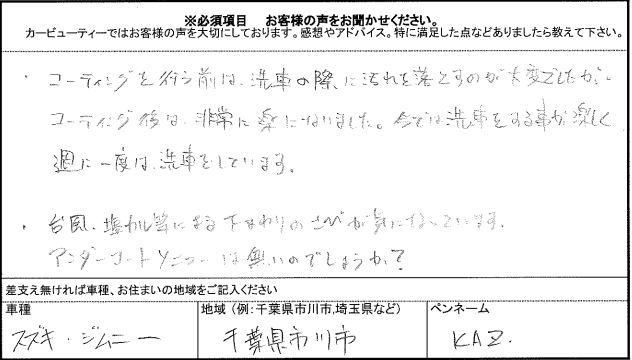 ※必須項目　お客様の声をお聞かせください。
カービューティーではお客様の声を大切にしております。感想やアドバイス。特に満足した点などありましたら教えて下さい。
・コーティングを行う前は、洗車の際に汚れを落とすのが大変でしたが、
コーティング後は、非常に楽になりました。今では洗車をする事が楽しく
週に一度は、洗車をしています。
・台風、塩カル等による下まわりのさびが気になっています。
アンダーコートメニューは無いのでしょうか？
差支え無ければ車種、お住まいの地域をご記入ください
車種　地域（例:千葉県市川市,埼玉県など）　ペンネーム
スズキ・ジムニー　千葉県市川市　KAZ.